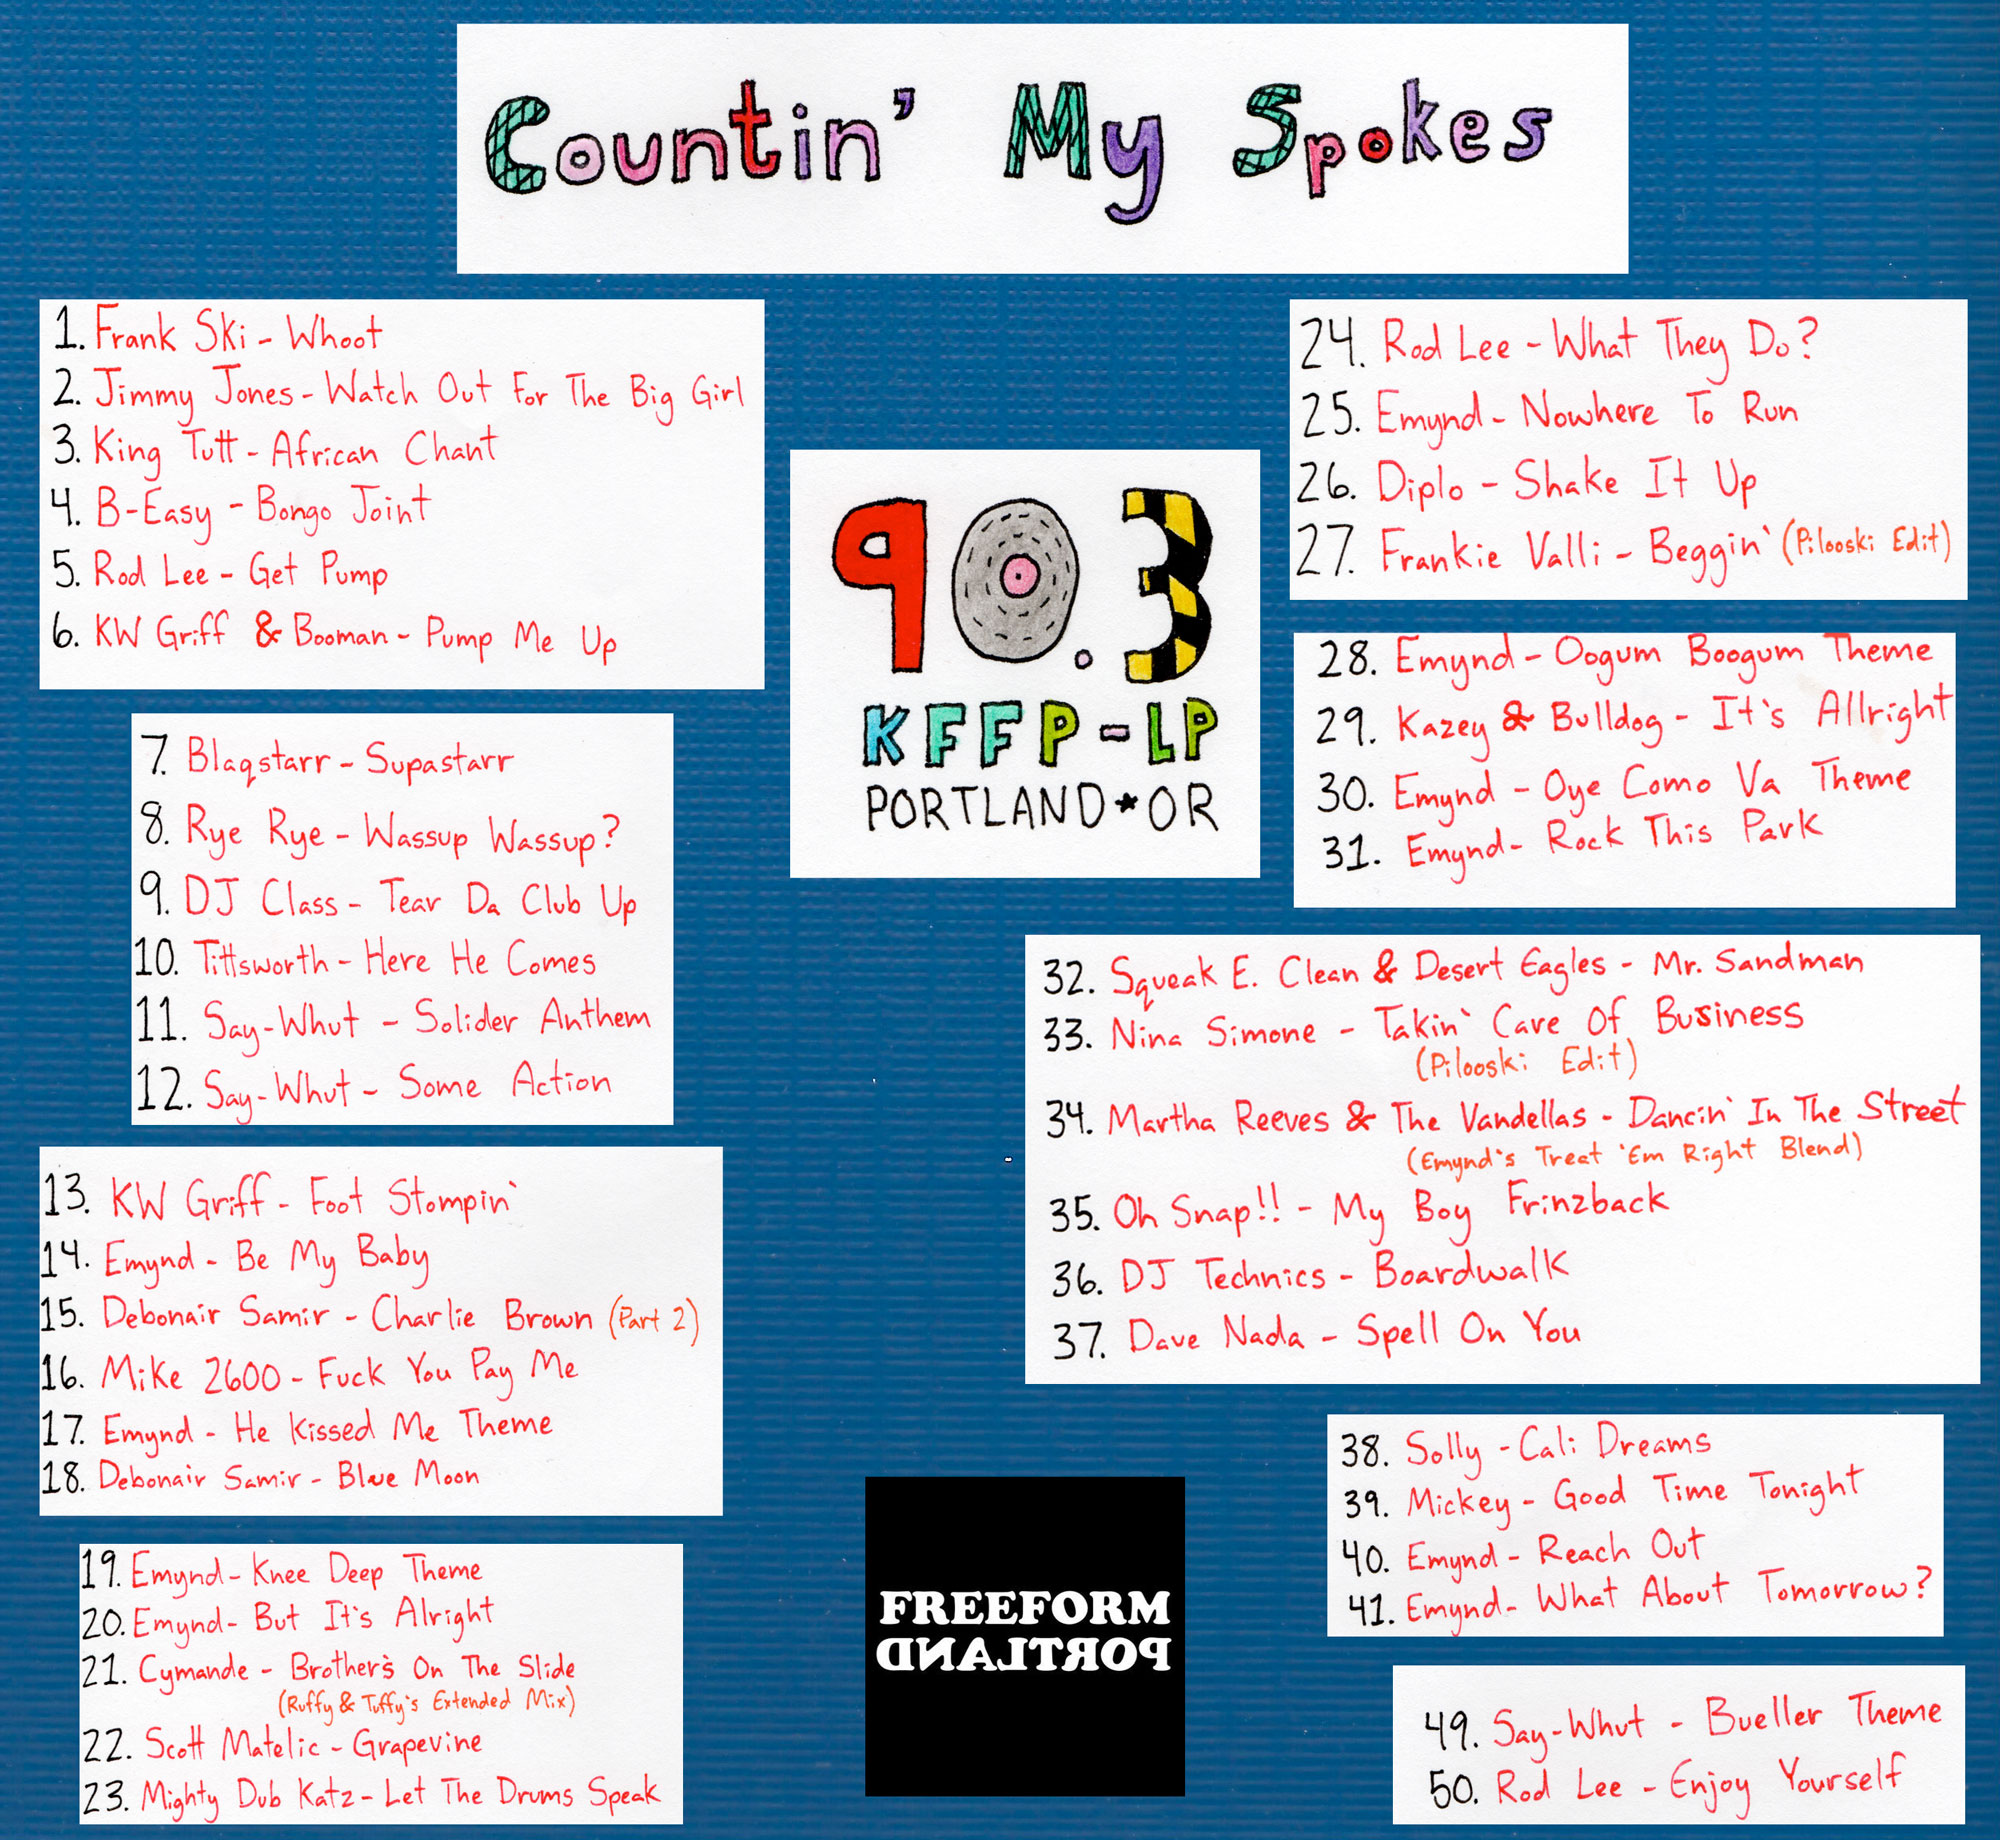 Countin' My Spokes
1. Frank Ski - Whoot
2. Jimmy Jones - Watch Out For The Big Girl
3. King Tutt - African Chant
4. B-Easy - Bongo Joint
5. Rod Lee - Get Pump
6. KW Griff & Booman - Pump Me Up
7. Blaqstarr - Supastarr
8. Rye Rye - Wassup Wassup?
9. DJ Class - Tear Da Club Up
10. Tittsworth - Here He Comes
11. Say-Whut - Solider Anthem
12. Say-Whut - Some Action
13. KW Griff - Foot Stompin'
14. Emynd - Be My Baby
15. Debonair Samir - Charlie Brown (Part 2)
16. Mike 2600 - Fuck You Pay Me
17. Emynd - He Kissed Me Theme
18. Debonair Samir - Blue Moon
19. Emynd - Knee Deep Theme
20. Emynd - But It's Alright
21. Cymande - Brother's On The Slide
(Ruffy & Tuffy's Extended Mix)
22. Scott Matelic - Grapevine
23. Mighty Dub Katz - Let The Drums Speak
90.3
KFFP-LP
PORTLAND*OR
FREEFORM
PORTLAND
24. Rod Lee - What They Do?
25. Emynd - Nowhere To Run
26. Diplo - Shake It Up
27. Frankie Valli - Beggin' (Pilooski Edit)
28. Emynd - Oogum Boogum Theme
29. Kazey & Bulldog - It's Allright
30. Emynd - Oye Como Va Theme
31. Emynd - Rock This Park
32. Squeak E. Clean & Desert Eagles - Mr. Sandman
33. Nina Simone - Takin' Care Of Business
(Pilooski Edit)
34. Martha Reeves & The Vandellas - Dancin' In The Street
(Emynd's Treat 'Em Right Blend)
35. Oh Snap!! - My Boy Frinzback
36. DJ Technics - Boardwalk
37. Dave Nada - Spell On You
38. Solly - Cali Dreams
39. Mickey - Good Time Tonight
40. Emynd - Reach Out
41. Emynd - What About Tomorrow?
49. Say-Whut - Bueller Theme
50. Rod Lee - Enjoy Yourself